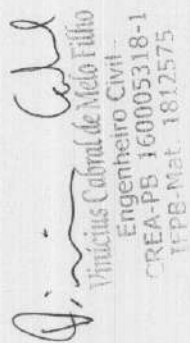 Vinícius Cabral de Melo Filho
Engenheiro Civil
CREA-PB 160005318-1
IFPB-Mat. 1812575